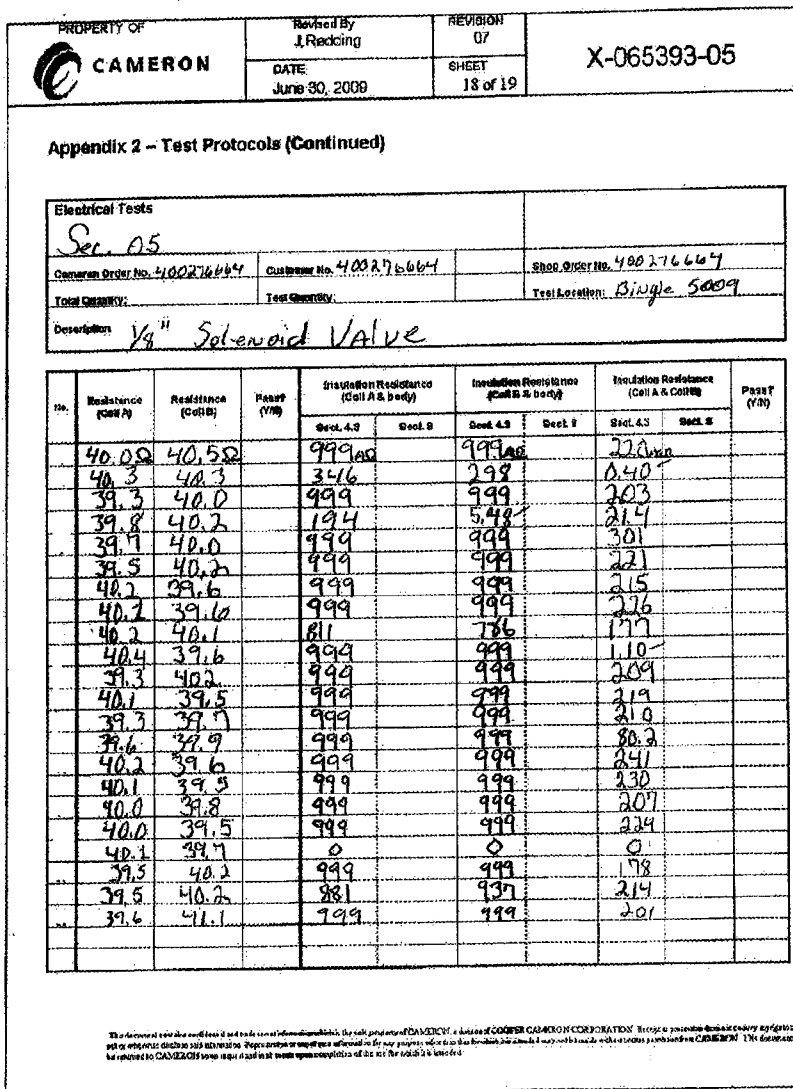 PROPERTY OF
CAMERON
Revised By
J.Redding
REVISION
07
X-065393-05
DATE:
June 30, 2009
SHEET
18 of 19
Appendix 2 – Test Protocols (Continued)
Electrical Tests
Sec. 05
Cameron Order No. 400276664 Customer No. 400276664 Shop Order No. 400276664
Total Quantity: Test Quantity: Test Location: Bingle 5009
Description 1/8" Solenoid Valve
No. Resistance (Coil A) Resistance (Coil B) Pass? (Y/N) Insulation Resistance (Coil A & body) Insulation Resistance (Coil B & body) Insulation Resistance (Coil A & Coil B) Pass? (Y/N)
Sect. 4.3 Sect. 8 Sect. 4.3 Sect. 8 Sect. 4.3 Sect. 8
40.0Ω 40.5Ω 999 999 220
40.3 40.3 346 298 0.40
39.3 40.0 999 999 203
39.8 40.2 194 5.48 21.4
39.7 40.0 999 999 301
39.5 40.2 999 999 221
40.2 39.6 999 999 215
40.2 39.6 999 999 226
40.2 40.1 811 786 177
40.4 39.6 999 999 1.10
39.3 40.2 999 999 209
40.1 39.5 999 999 219
39.3 39.7 999 999 210
39.6 39.9 999 999 80.2
40.2 39.6 999 999 241
40.1 39.5 999 999 230
40.0 39.8 999 999 207
40.0 39.5 999 999 224
40.1 39.7 0 0 0
39.5 40.2 999 999 178
39.5 40.2 881 937 214
39.6 41.1 999 999 201